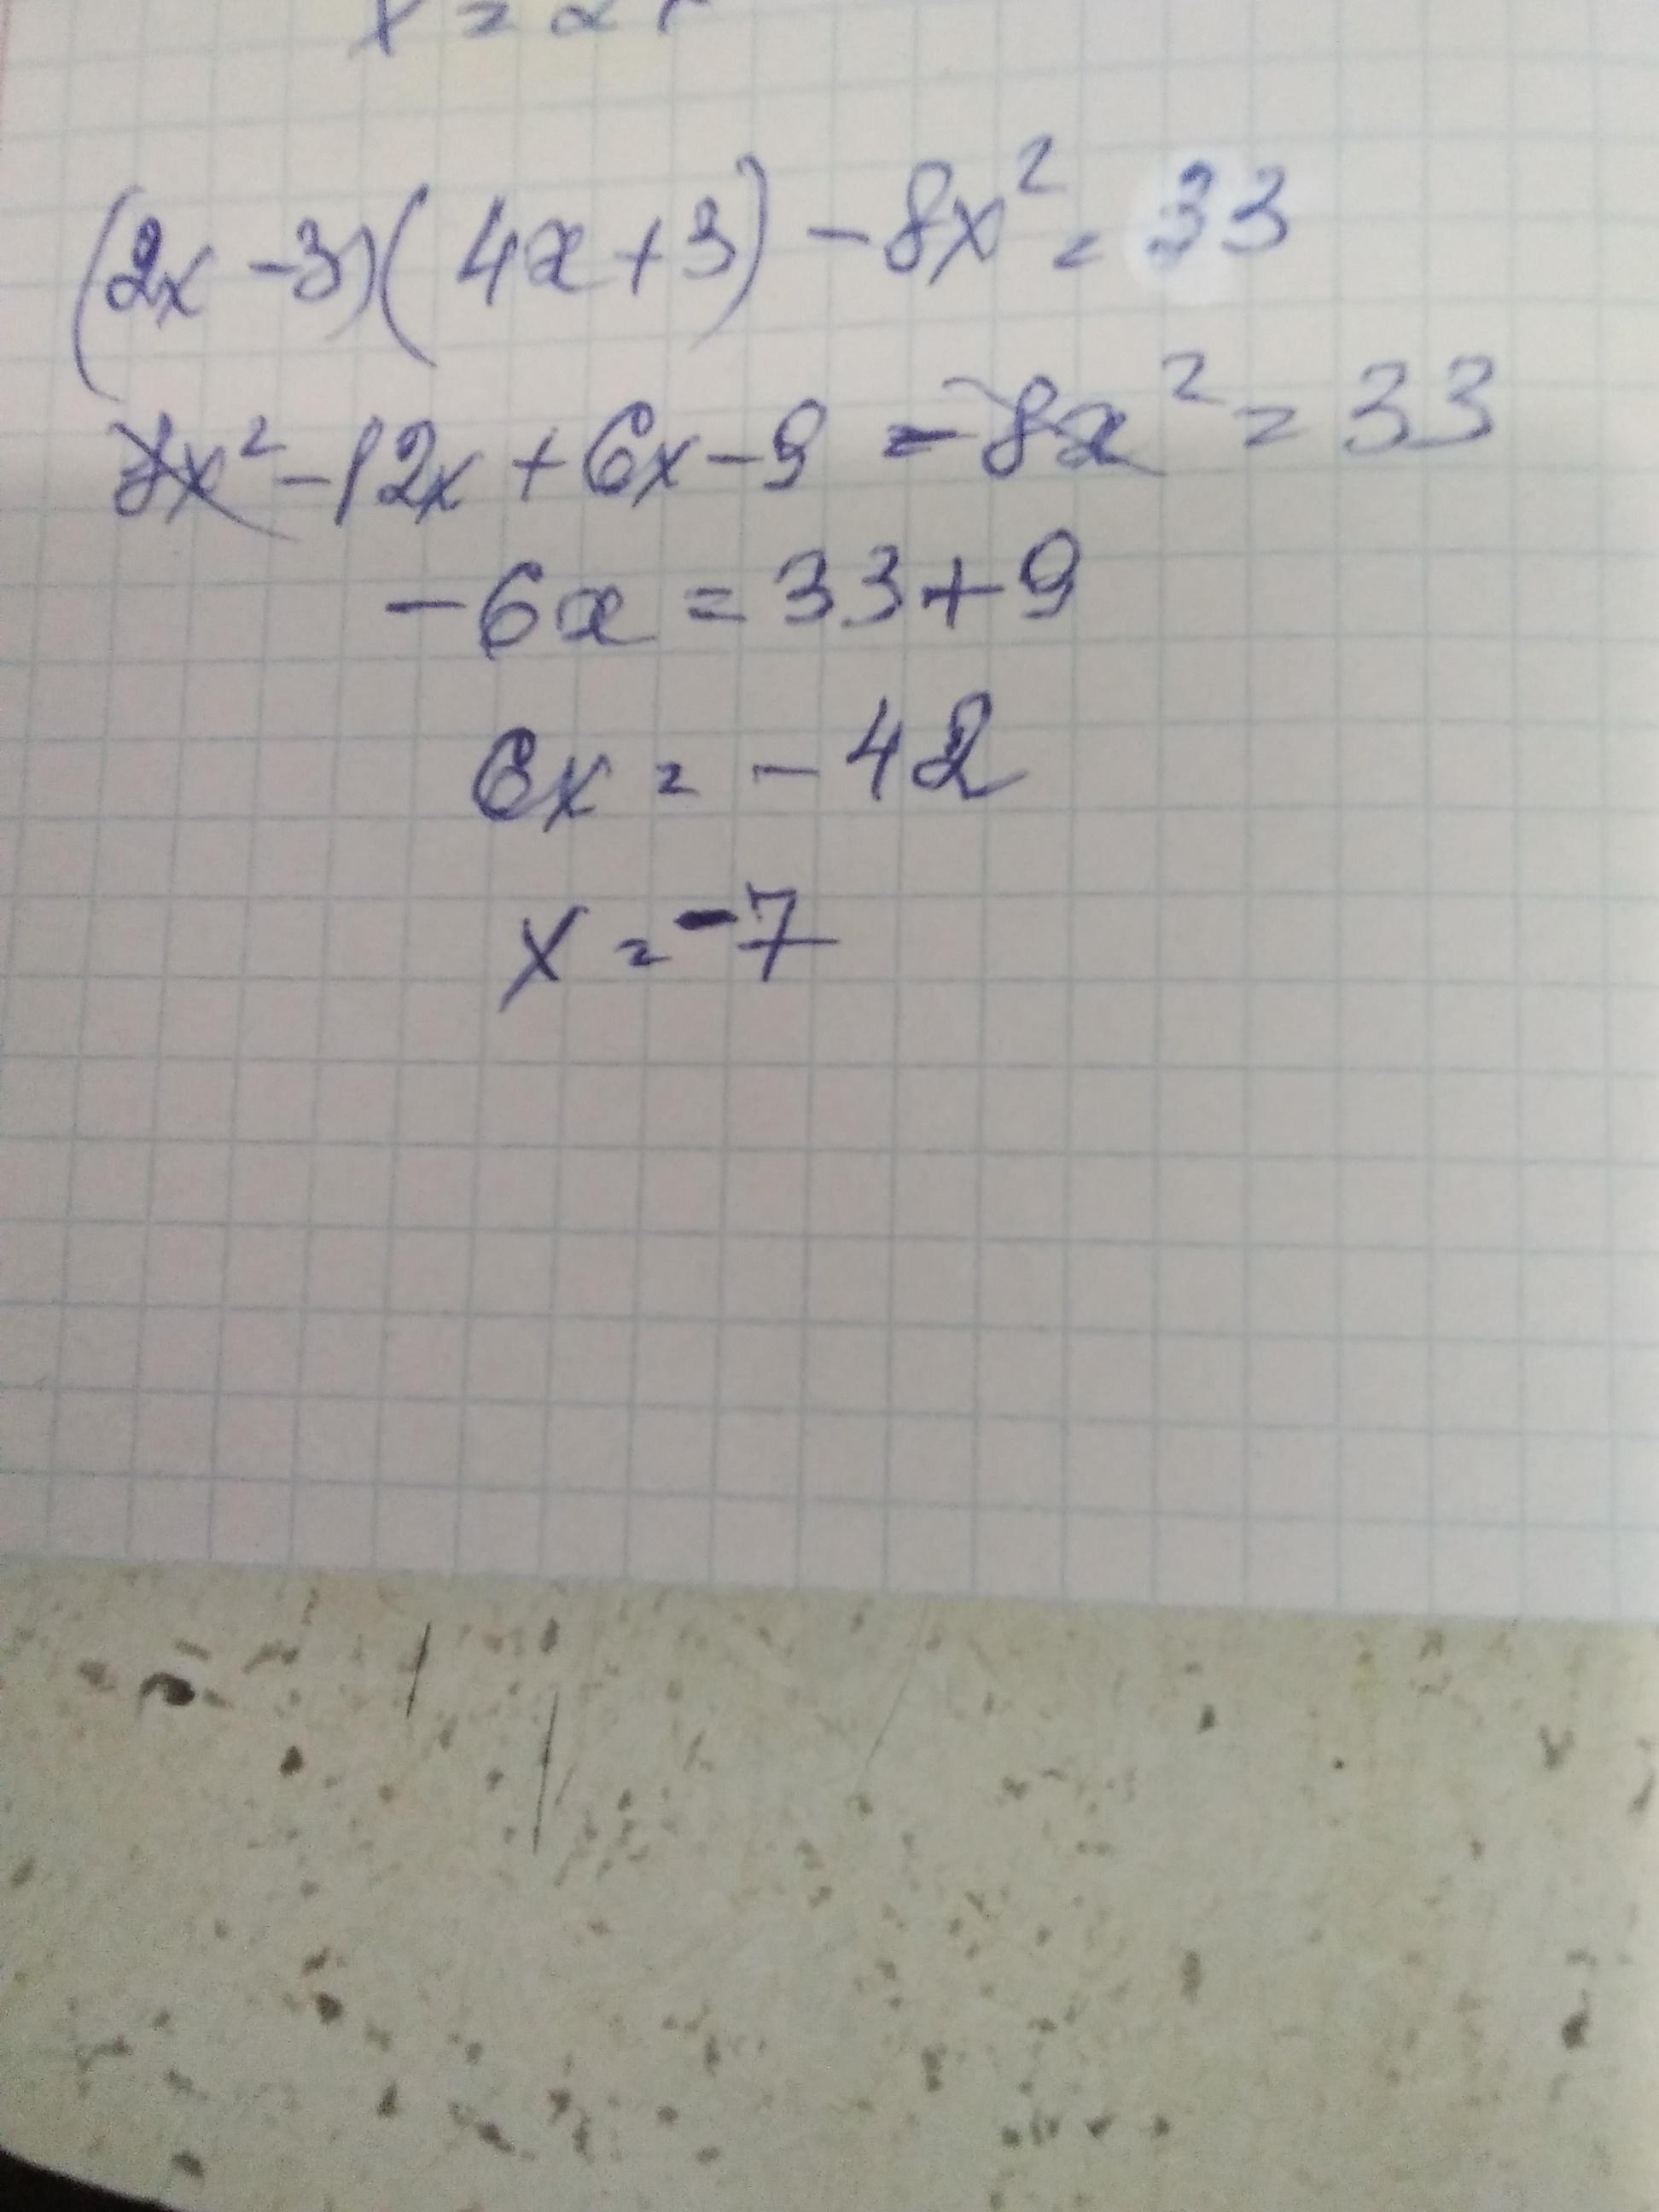 (2x-3)(4x+3)-8x²=33
8x²-12x+6x-9-8x²=33
-6x=33+9
6x=-42
x=-7